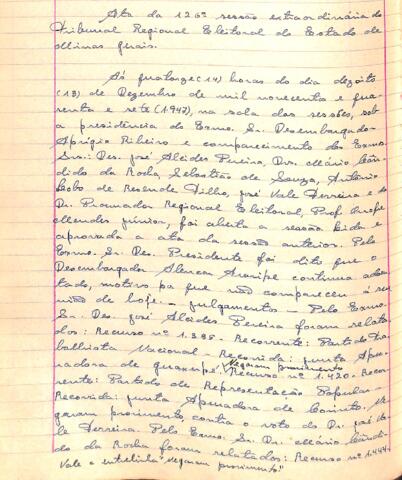 Ata da 126ª sessão extraordinária do
Tribunal Regional Eleitoral do Estado de
Minas Gerais.
Às quatorze (14) horas do dia dezoito
(18) de Dezembro de mil novecentos e qua-
renta e sete (1947), na sala das sessões, sob
a presidência do Exmo. Sr. Desembargador
Aprígio Ribeiro e comparecimento dos Exmos.
Srs.: Des. José Alcides Pereira, Drs. Mário Cân-
dido da Rocha, Sebastião de Souza, Antônio
Lobo de Resende Filho, José Vale Ferreira e do
Dr. Procurador Regional Eleitoral, Prof. Onofre
Mendes Júnior, foi aberta a sessão lida e
aprovada a ata da sessão anterior. Pelo
Exmo. Sr. Des. Presidente foi dito que o
Desembargador Alencar Araripe continua adoen-
tado, motivo pq que não compareceu à reu-
nião de hoje. - Julgamentos - Pelo Exmo.
Sr. Des. José Alcides Pereira foram relata-
dos: Recurso nº 1.385 - Recorrente: Partido Tra-
balhista Nacional - Recorrida: Junta Apu-
radora de Guaxupé. Negaram provimento Recurso nº 1.420. Recor-
rente: Partido de Representação Popular -
Recorrida: Junta Apuradora de Corinto. Ne-
garam provimento contra o voto do Dr. José Va-
le Ferreira. Pelo Exmo. Sr. Dr. Mário Cândi-
do da Rocha foram relatados: Recurso nº 1.444.
Vale a entrelinha "Negaram provimento"